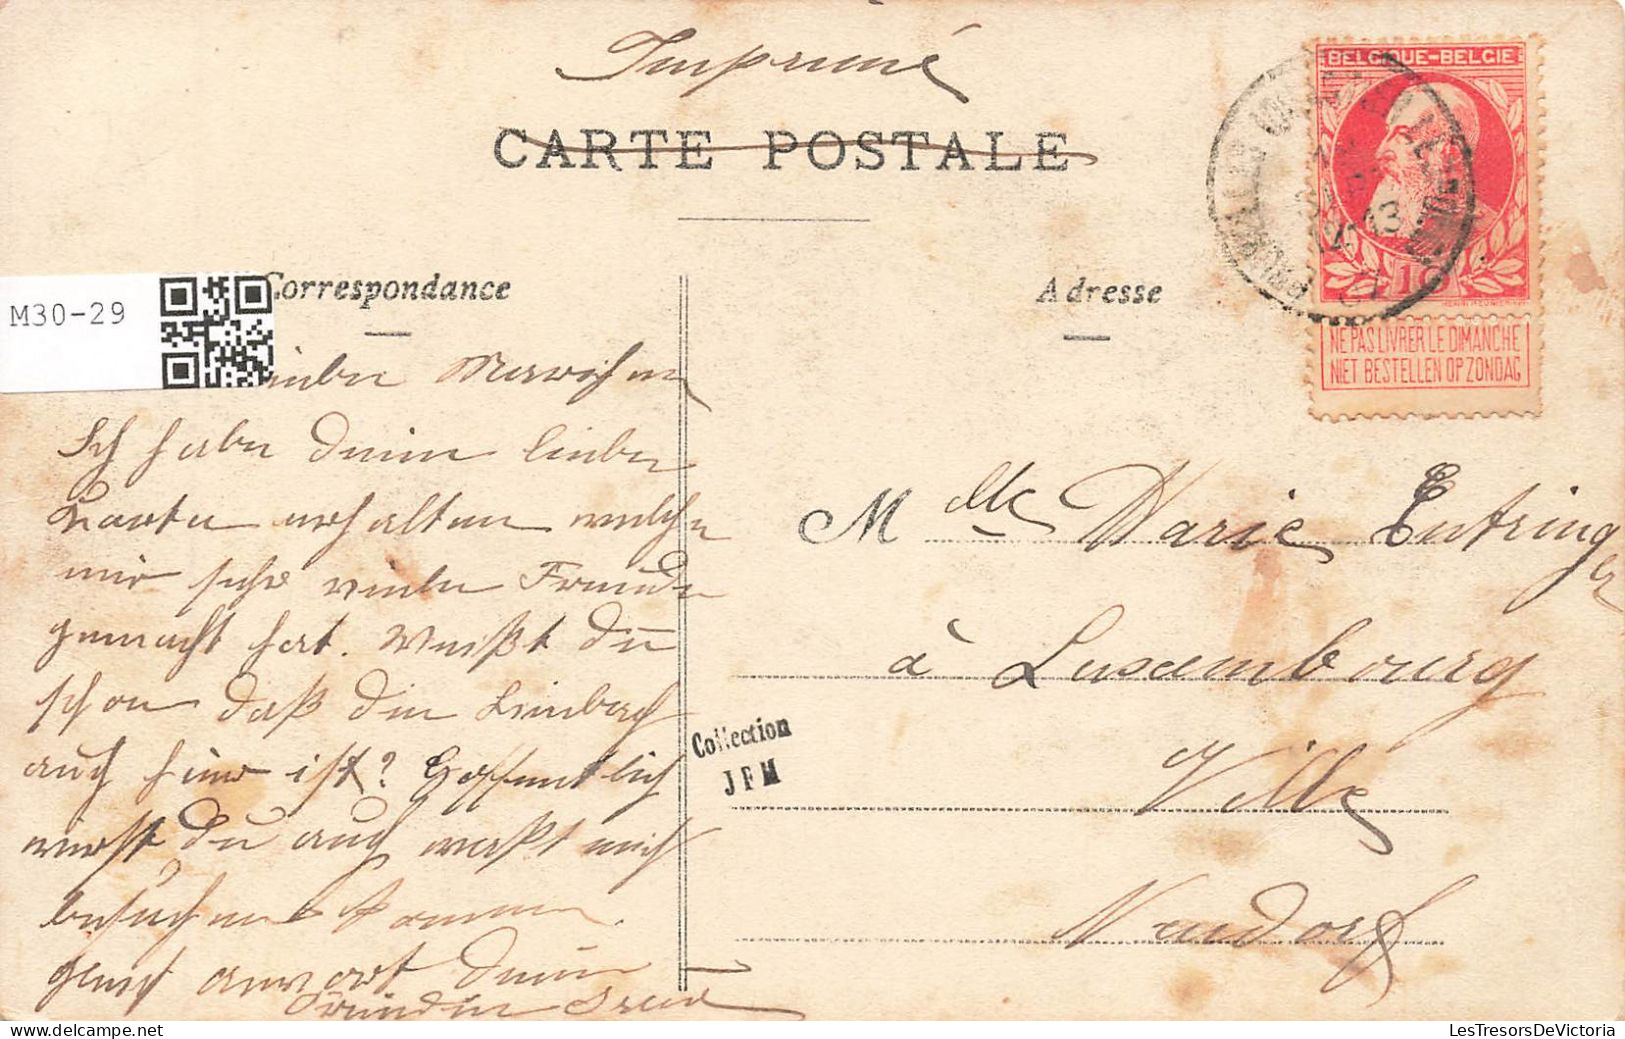 Imprimé
CARTE POSTALE
BELGIQUE-BELGIË
10
NE PAS LIVRER LE DIMANCHE
NIET BESTELLEN OP ZONDAG
M30-29
Correspondance
Adresse
Liebe Mariechen
Ich habe deine lieben
Karten erhalten welche
mir sehr viele Freude
gemacht hat. Weißt du
schon daß die Limbach
auch hier ist? Hoffentlich
wirst du auch mich
besuchen kommen.
deine
Freundin
Collection
JFM
Mlle Marie Entringer
à Luxembourg
Ville
Neudorf
LesTresorsDeVictoria